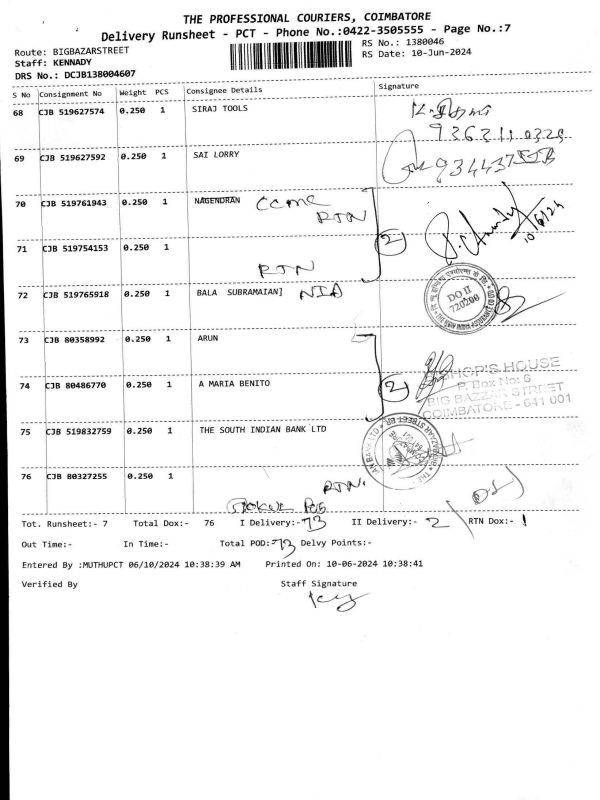 THE PROFESSIONAL COURIERS, COIMBATORE
Delivery Runsheet - PCT - Phone No.:0422-3505555 - Page No.:7
Route: BIGBAZARSTREET
RS No.: 1380046
Staff: KENNADY
RS Date: 10-Jun-2024
DRS No.: DCJB138004607
S No Consignment No Weight PCS Consignee Details Signature
68 CJB 519627574 0.250 1 SIRAJ TOOLS
69 CJB 519627592 0.250 1 SAI LORRY
70 CJB 519761943 0.250 1 NAGENDRAN
RTN
2
10/6/24
71 CJB 519754153 0.250 1
RTN
72 CJB 519765918 0.250 1 BALA SUBRAMAIAN] NIA
DO II
720200
73 CJB 80358992 0.250 1 ARUN
BISHOP'S HOUSE
P. Box No: 6
BIG BAZZAR STREET
COIMBATORE - 641 001
74 CJB 80486770 0.250 1 A MARIA BENITO 2
75 CJB 519832759 0.250 1 THE SOUTH INDIAN BANK LTD
76 CJB 80327255 0.250 1
RTN
Tot. Runsheet:- 7 Total Dox:- 76 I Delivery:- 73 II Delivery:- 2 RTN Dox:- 1
Out Time:- In Time:- Total POD:- 73 Delvy Points:-
Entered By :MUTHUPCT 06/10/2024 10:38:39 AM Printed On: 10-06-2024 10:38:41
Verified By Staff Signature